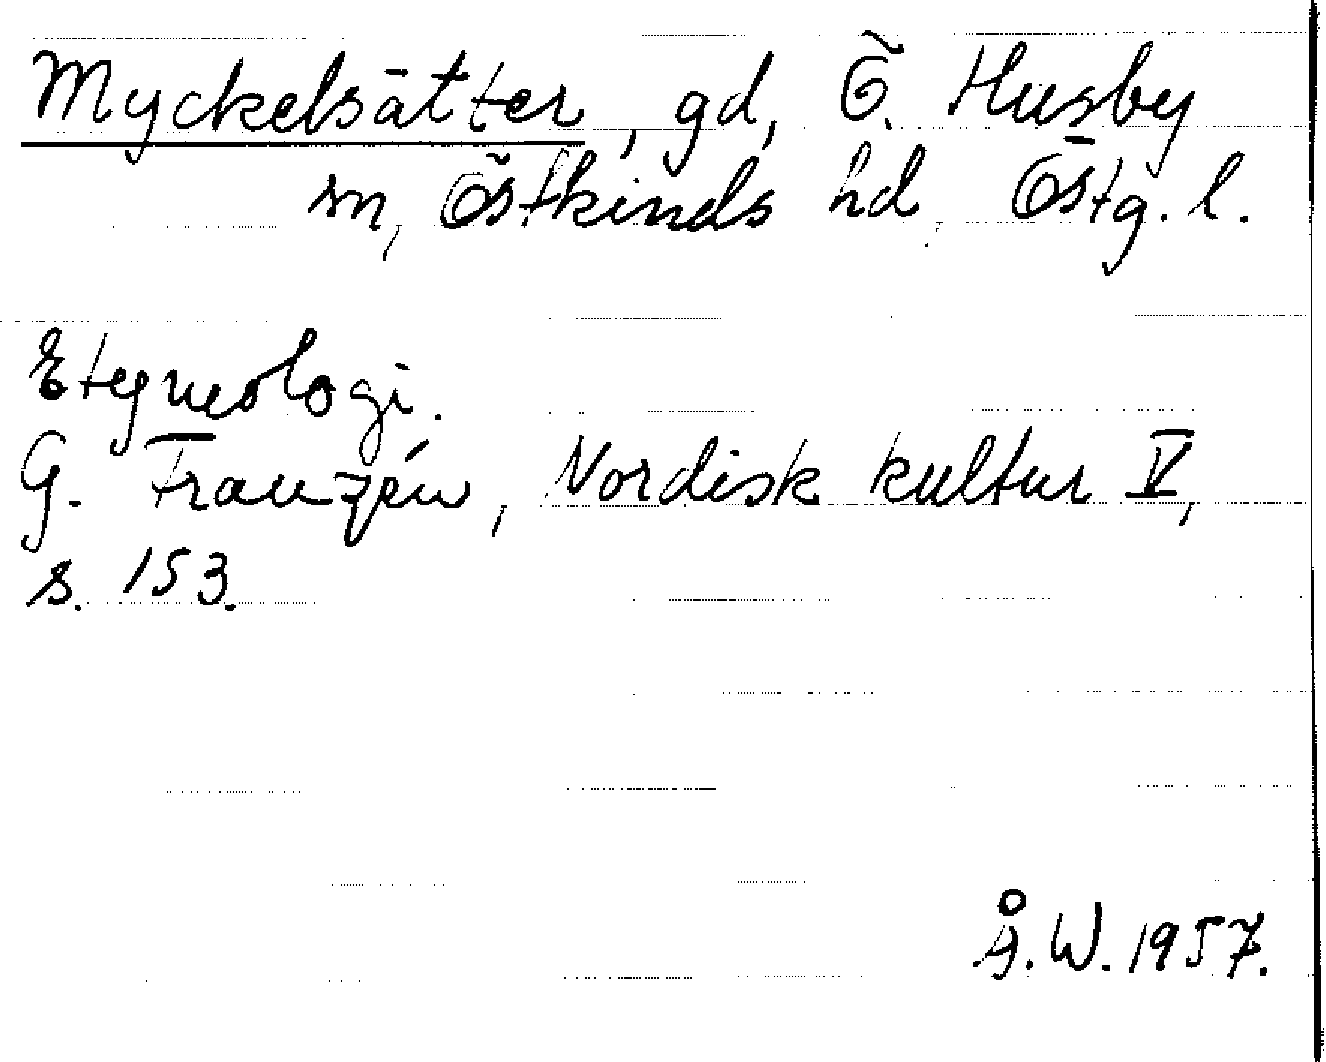 Myckelsätter, gd, Ö. Husby
sn, Östkinds hd, Östg. l.
Etymologi.
G. Franzén, Nordisk kultur V,
s. 153.
Å. W. 1957.